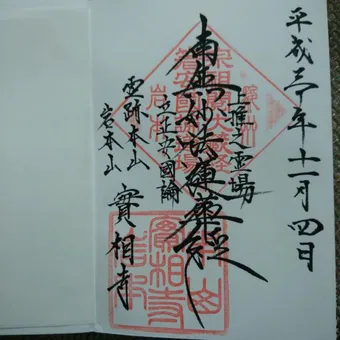 平成三十年十一月四日
上奏之霊場
南無妙法蓮華経
立正安國論
霊跡本山
岩本山 實相寺
實相寺